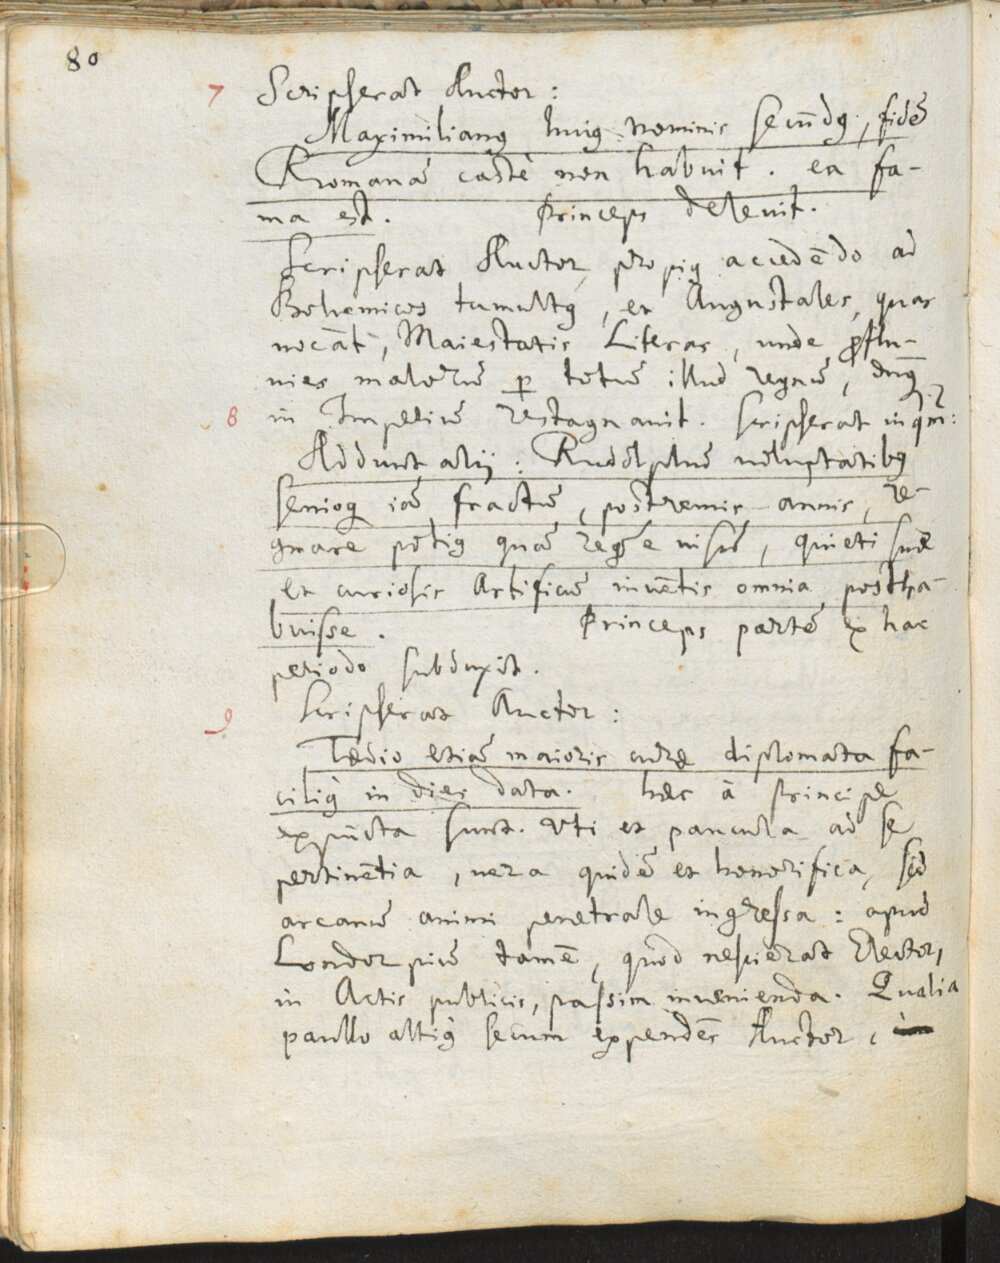 80
7 Scripserat Auctor:
Maximilianꝰ huiꝰ nominis secūdꝰ, fidē
Rromanā castè non habuit. ea fa-
ma est. Princeps delevit.
Scripserat Auctor, propiꝰ accedēdo ad
Bohemicos tumultꝰ, et Augustales, quas
vocāt, Maiestatis Literas, unde ꝓflu-
vies malorū ꝑ totū illud regnū,
8 in Imperiū restagnavit. scripserat inqm̄:
Addunt alij: Rudolphū voluptatibꝰ
senioqꝫ iā fractū, postremis annis, re-
gnare potiꝰ quā regere visū, quieti suæ
et curiosis Artificū invētis omnia postha-
buisse. Princeps partē ex hac
periodo subduxit.
9 Scripserat Auctor:
Tædio etiā maioris curæ diplomata fa-
ciliꝰ in dies data. hæc à Principe
expūcta sunt. Uti et paucula ad se
pertinētia, vera quidē et honorifica, sed
arcanū animi penetrale ingressa: apud
Londorpiū tamē, quod nescierat Elector,
in Actis publicis, passim invenienda. Qualia
paullo altiꝰ secum expendēs Auctor,